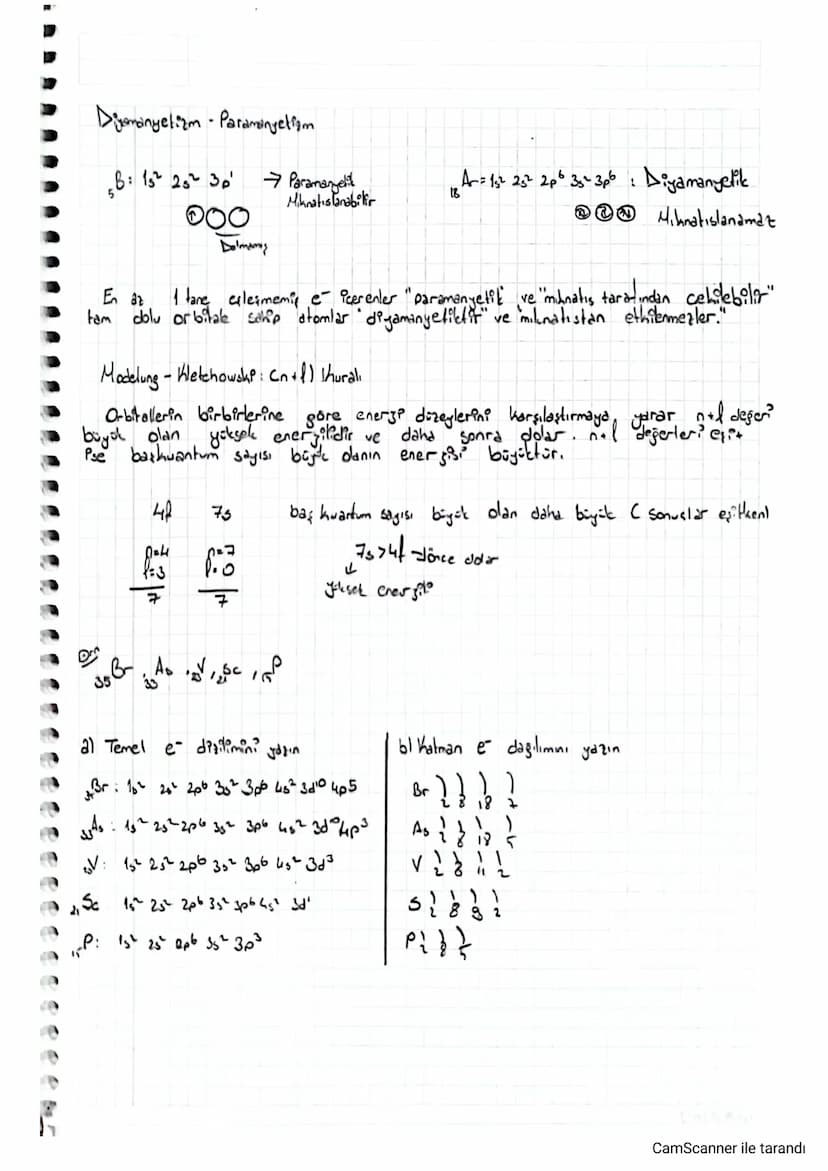 Diyamanyetizm - Paramanyetizm
₅B: 1s² 2s² 3p¹ → Paramanyetik
Mıknatıslanabilir
Dolmamış
₁₈Ar = 1s² 2s² 2p⁶ 3s² 3p⁶ : Diyamanyetik
Mıknatıslanamaz
En az 1 tane eşleşmemiş e⁻ içerenler "paramanyetik" ve "mıknatıs tarafından çekilebilir"
tam dolu orbitale sahip atomlar "diyamanyetiktir" ve "mıknatıstan etkilenmezler."
Modelung - Kletchowski: (n+l) Kuralı
Orbitallerin birbirlerine göre enerji düzeylerini karşılaştırmaya yarar n+l değeri
büyük olan yüksek enerjilidir ve daha sonra dolar. n+l değerleri eşit
ise başkuantum sayısı büyük olanın enerjisi büyüktür.
4f 7s baş kuantum sayısı büyük olan daha büyük ( sonuçlar eşitken)
n=4 n=7 7s>4f → önce dolar
l=3 l=0 ↓
7 7 yüksek enerjili
Örn
₃₅Br, ₃₃As, ₂₃V, ₂₁Sc, ₁₅P
a) Temel e⁻ dizilimini yazın
₃₅Br: 1s² 2s² 2p6 3s² 3p6 4s² 3d¹⁰ 4p5
₃₃As: 1s² 2s² 2p6 3s² 3p6 4s² 3d¹⁰ 4p³
₂₃V: 1s² 2s² 2p6 3s² 3p6 4s² 3d³
₂₁Sc 1s² 2s² 2p6 3s² 3p6 4s² 3d¹
₁₅P: 1s² 2s² 2p6 3s² 3p³
b) Katman e⁻ dağılımını yazın
Br ) ) ) )
2 8 18 7
As ) ) ) )
2 8 18 5
V ) ) ) )
2 8 11 2
S ) ) ) )
2 8 9 2
P ) ) )
2 8 5
CamScanner ile tarandı